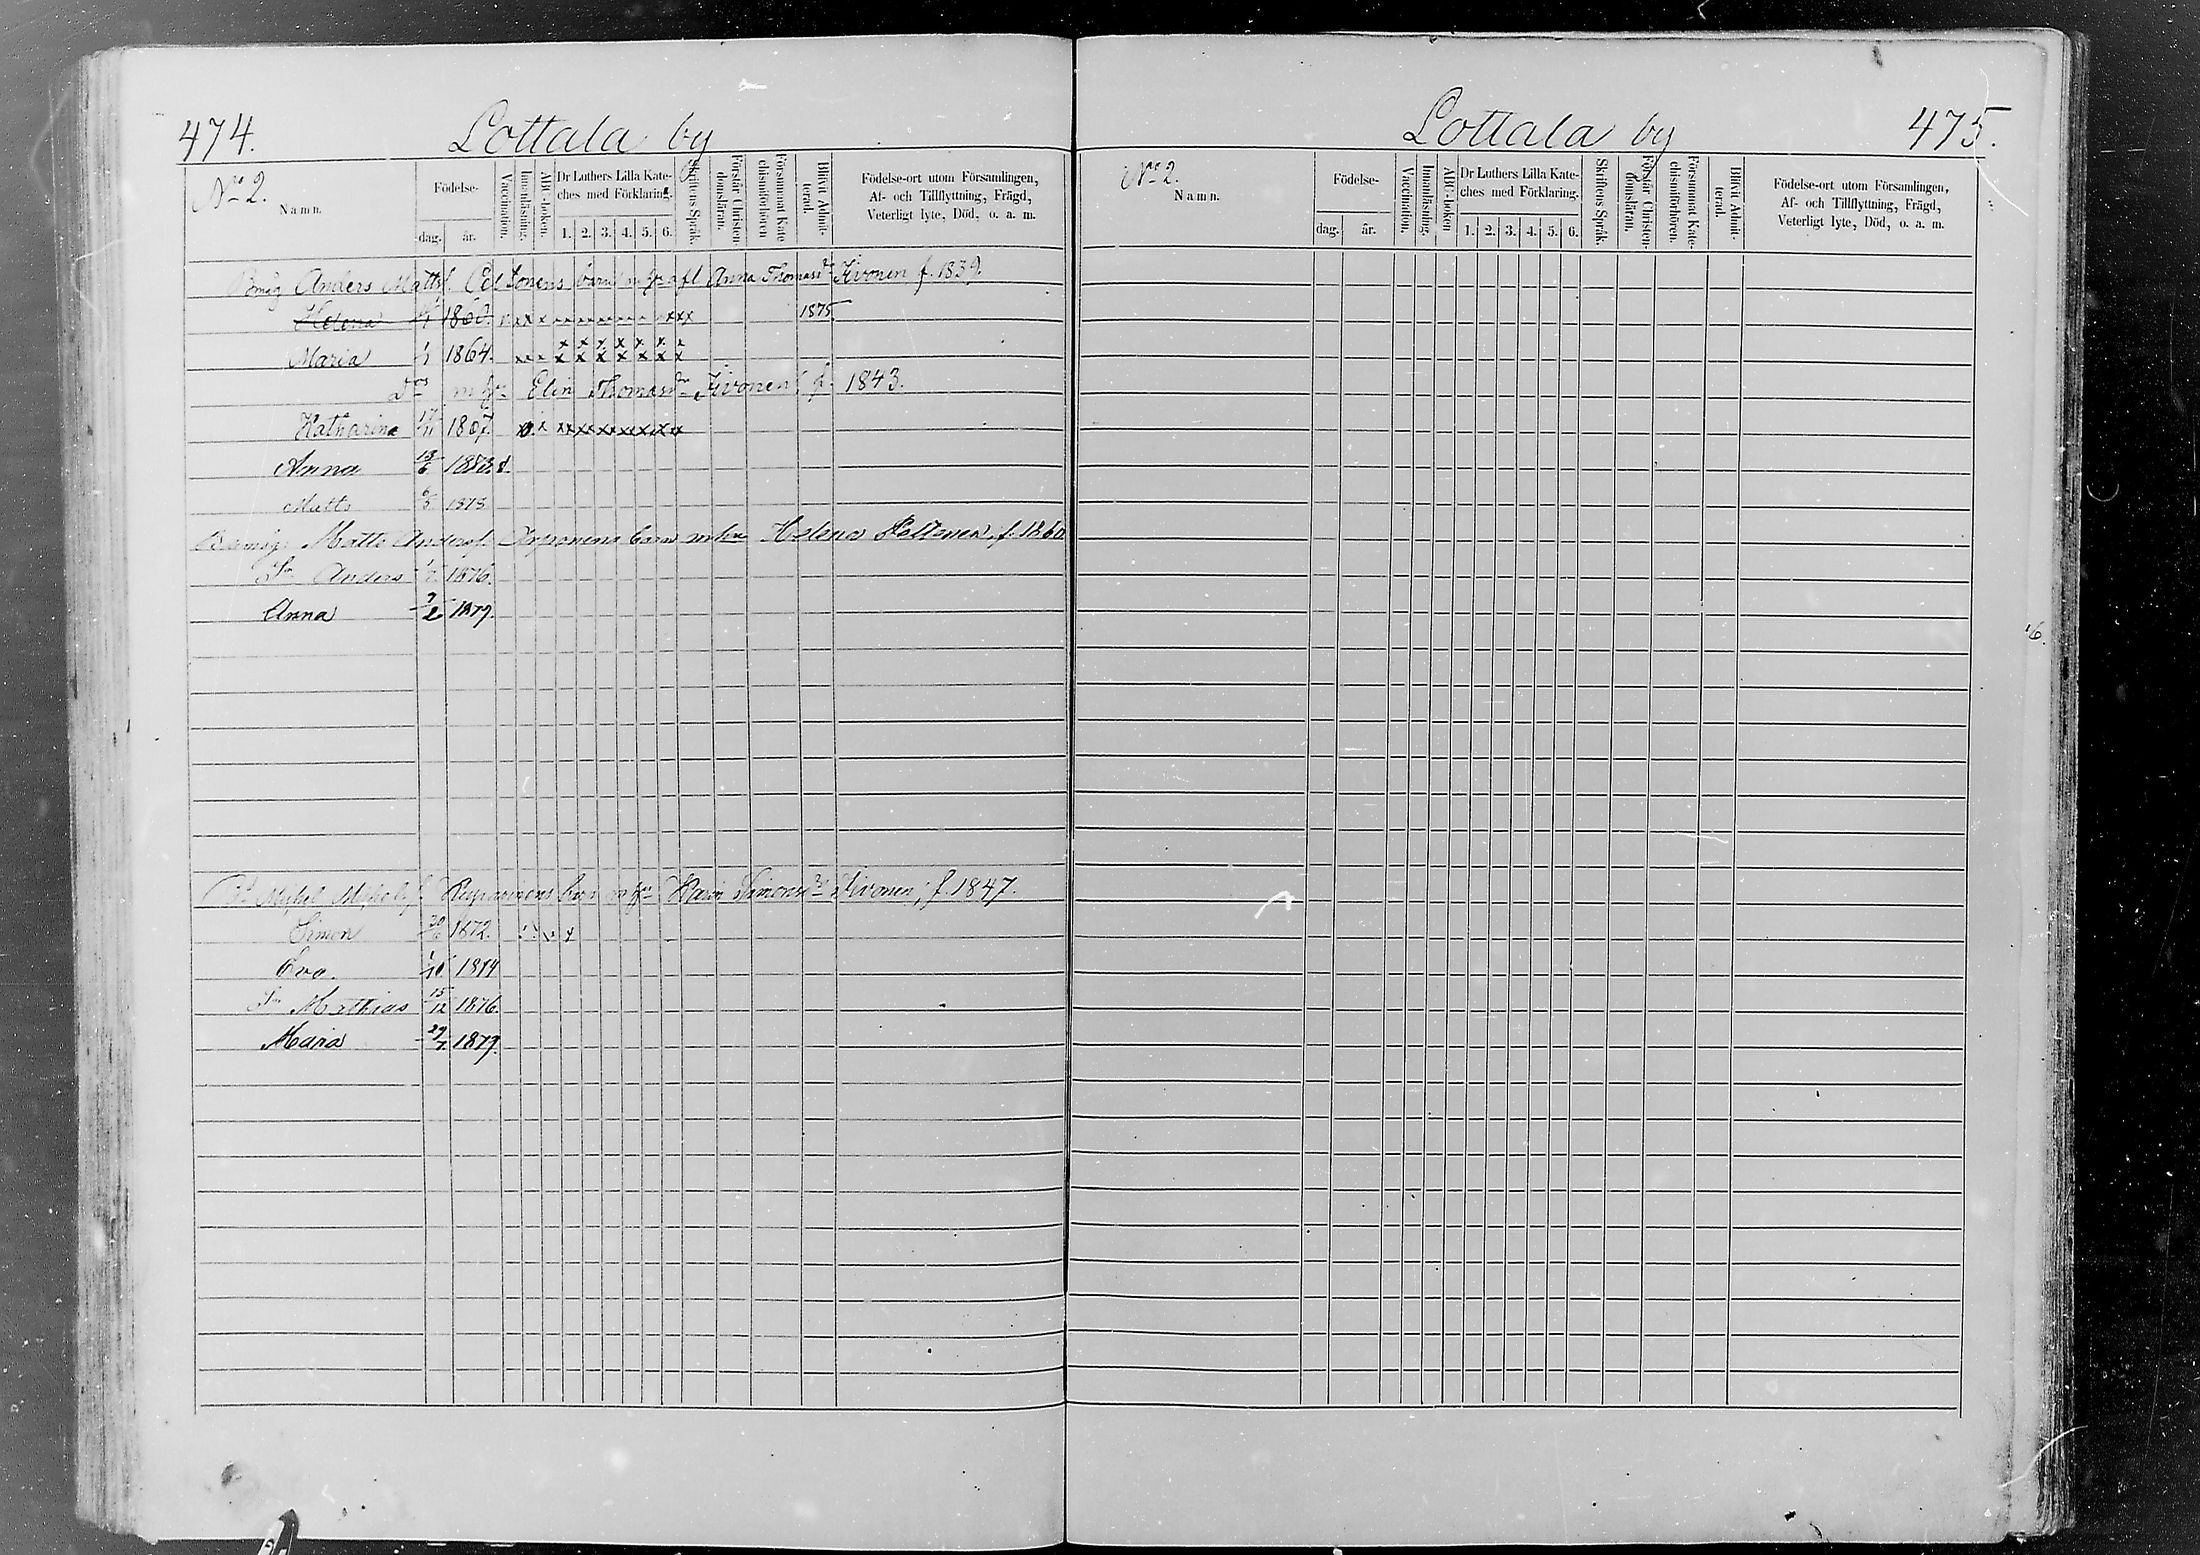 474. Lottala by
No 2.
Namn.
Födelse-
dag. år.
Vaccination.
Innanläsning.
ABC-boken.
Dr Luthers Lilla Kate-
ches med Förklaring.
1. 2. 3. 4. 5. 6.
Skriftens Språk.
Förstår Christen-
domsläran.
Försummat Kate-
chismiförhören
Blifvit Admit-
terad.
Födelse-ort utom Församlingen,
Af- och Tillflyttning, Frägd,
Veterligt lyte, Död, o. a. m.
Anders Matts. barn m. h. afl Anna Thomasdr Kivonen f. 1839.
Helena 1860. 1875.
Maria 1864.
Dos m. hu Elin Thomasdr Kivonen f. 1843.
Katharina 17/11
Anna 13/6
Matts 6/5 1878
Matts Anderss. barn m hu Helena Peltonen f. 1860
Sn Anders 1876.
Anna 9/2 1879.
Mikel barn m hu Maria Simonsdr Kivonen, f. 1847.
Simon 1872.
Eva. 1874
Sn Mathias 15/12 1876.
Maria 29/7 1879.
Lottala by 475.
No 2.
Namn.
Födelse-
dag. år.
Vaccination.
Innanläsning.
ABC-boken
Dr Luthers Lilla Kate-
ches med Förklaring.
1. 2. 3. 4. 5. 6.
Skriftens Språk.
Förstår Christen-
domsläran.
Försummat Kate-
chismiförhören.
Blifvit Admit-
terad.
Födelse-ort utom Församlingen,
Af- och Tillflyttning, Frägd,
Veterligt lyte, Död, o. a. m.